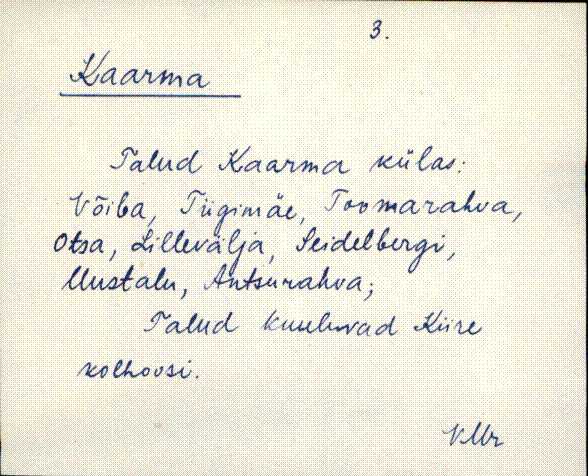 3.
Kaarma
Talud Kaarma külas:
Võiba, Tiigimäe, Toomarahva,
Otsa, Lillevälja, Seidelbergi,
Uustalu, Antsurahva;
Talud kuuluvad Kiire
kolhoosi.
VMr